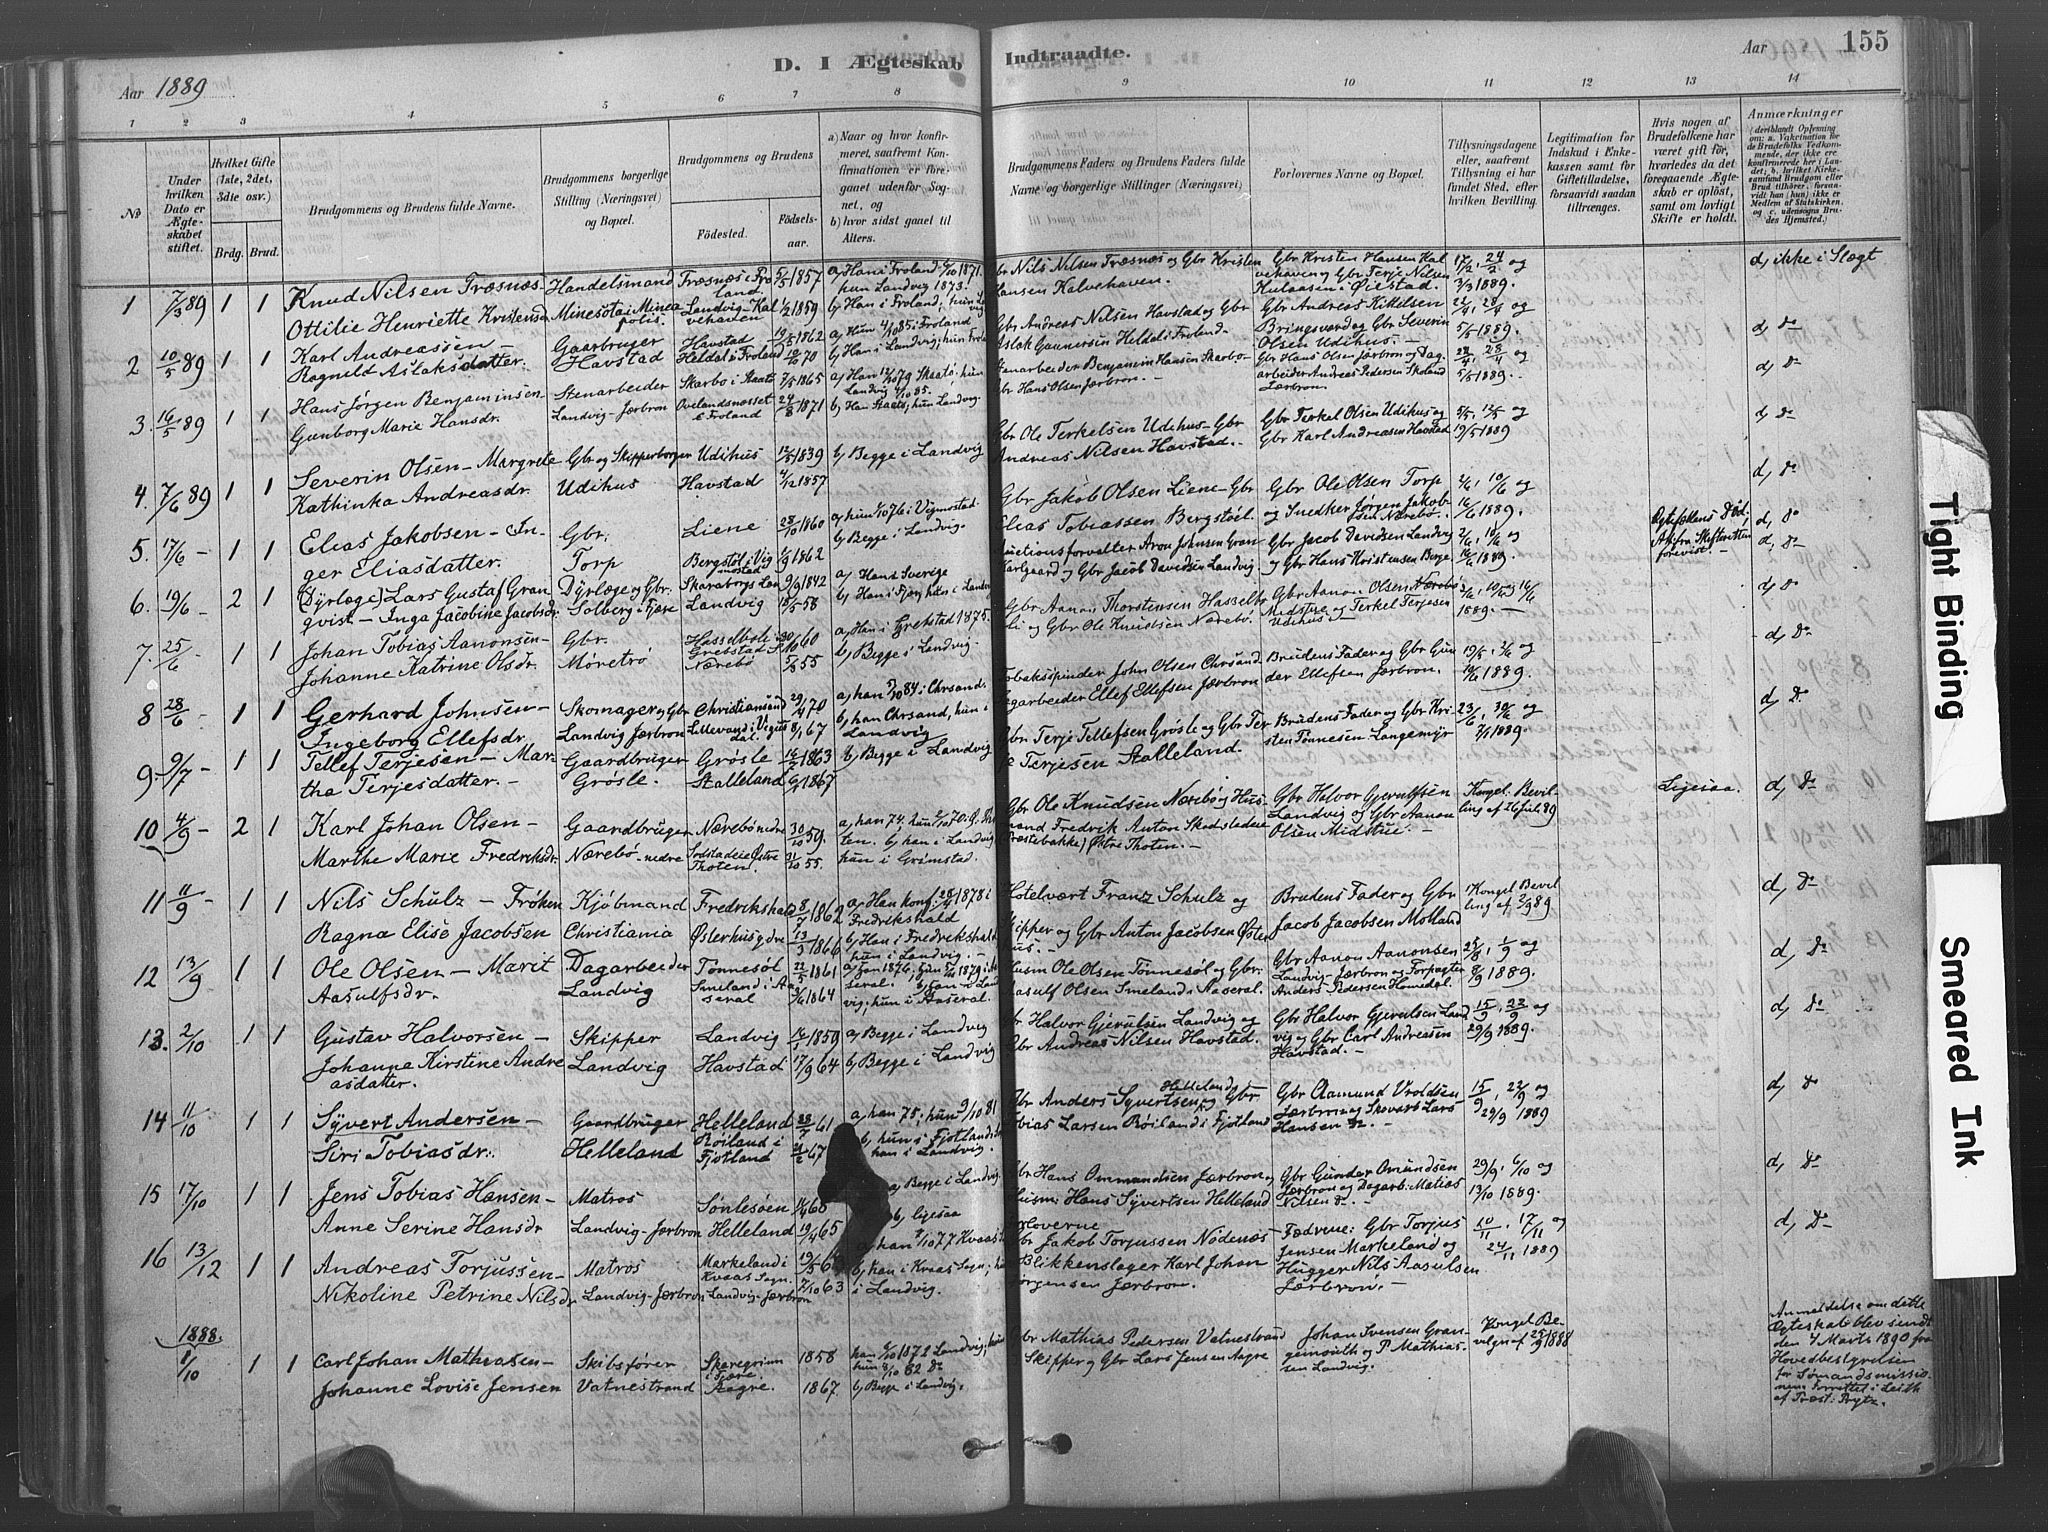 Aar 1889
D. I Ægteskab Indtraadte.
Aar
155
1 2 3 4 5 6 7 8 9 10 11 12 13 14
No
Under hvilken Dato er Ægteskabet stiftet.
Hvilket Gifte (1ste, 2det, 3die osv.)
Brdg. Brud.
Brudgommens og Brudens fulde Navne.
Brudgommens borgerlige Stilling (Næringsvei) og Bopæl.
Brudgommens og Brudens
Fødested.
Fødselsaar.
a) Naar og hvor konfirmeret, saafremt Konfirmationen er foregaaet udenfor Sognet, og
b) hvor sidst gaaet til Alters.
Brudgommens Faders og Brudens Faders fulde Navne og borgerlige Stillinger (Næringsvei)
Forlovernes Navne og Bopæl.
Tillysningsdagene eller, saafremt Tillysning ei har fundet Sted, efter hvilken Bevilling.
Legitimation for Indskud i Enkekassen samt for Giftetilladelse, forsaavidt saadan tiltrænges.
Hvis nogen af Brudefolkene har været gift før, hvorledes da det foregaaende Ægteskab er opløst, samt om lovligt Skifte er holdt.
Anmærkninger
1 7/3 89 1 1 Knud Nilsen Træsnæs Handelsmand Træsnæs i Froland 5/5 1857 a, Han i Froland 1871. hun Landvig 1873.
Ottilie Henriette Kristensd Minesota i Mineapolis. Landvig-Kalvehaven 1/2 1859 b, Han i Froland; hun Landvig
Gbr Nils Nilsen Træsnæs og Gbr Kristen Hansen Kalvehaven.
Gbr Kristen Hansen Kalvehaven og Gbr Terje Nilsen Øiestad.
17/2, 24/2 og 3/3 1889.
d, ikke i Slægt
2 10/5 89 1 1 Karl Andreassen Gaarbruger Havstad 1862
Ragnild Aslaksdatter. Havstad Heldal i Froland 70 b, Han i Landvig; hun Froland
Gbr Andreas Nilsen Havstad og Gbr Aslak Gunnersen Heldel i Froland.
Gbr Andreas Kittelsen Bringsværd og Gbr Severin Olsen Udihus.
5/5 1889.
d, Do
3. 16/5 89 1 1 Hans Jørgen Benjaminsen Stenarbeider Skarbo i Skaatø 7/5 1865
Gunborg Marie Hansdr. Landvig-Jærbron Ovelandsnæsset i Froland 24/8 1871 b, Han Skaatø; hun Landvig.
Stenarbeider Benjamin Hansen Skarbo Gbr Hans Olsen Jærbron.
Gbr Hans Olsen Jærbron og Dagarbeider Andreas Pedersen Jærbron
5/5 1889.
d, Do
4. 7/6 89 1 1 Severin Olsen - Margrete Gbr og Skipperborger Udihus 12/5 1839 b, Begge i Landvig
Kathinka Andreasdr. Udihus Havstad 4/12 1857
Gbr Ole Terkelsen Udihus - Gbr Andreas Nilsen Havstad.
Gbr Terkel Olsen Udihus og Gbr Karl Andreasen Havstad
5/5, 12/5 og 19/5 1889
d, Do
5. 17/6 - 1 1 Elias Jakobsen - Inger Eliasdatter. Gbr. Torp Liene 28/10 1860 Bergstøl i Vigmostad 1862
b, Begge i Landvig.
Gbr Jakob Olsen Liene - Gbr Elias Tobiassen Bergstøl.
Gbr Ole Olsen Torp og Snedker Jørgen Jakobsen Nærebø.
2/6, 10/6 og 16/6 1889.
d, Do
6. 19/6 - 2 1 (Dyrlæge) Lars Gustaf Granqvist - Inga Jacobine Jacobsdr Dyrlæge og Gbr. Solberg i Fjære Skaraborgs Lan 9/9 1842 Landvig 58
a, Han i Sverige b, Han i Fjære, hun i Landvig
Auctionsforvalter Aron Johnsen Gran Karlgaard og Gbr Jacob Davidsen Landvig
Gbr Jacob Davidsen Landvig og Gbr Hans Kristensen Berge
1889.
Ægtefællens Død,
d, Do
7. 25/6 1 1 Johan Tobias Aanonsen - Gbr. Hasselbo i Grebstad 60 a, Han i Grebstad 1875.
Johanne Katrine Olsdr. Møretrø Nærebø 55 b, Begge i Landvig.
Gbr Aanon Thorstensen og Gbr Ole Knudsen Nærebø.
Gbr Aanon Olsen Midstue og Terkel Terjesen Udihus
1889.
d, Do
8 28/6 - 1 1 Gerhard Johnsen - Skomager og Gbr Christiansand 29/4 70 a, han 84 i Chrsand.
Ingeborg Ellefsdr. Landvig Jærbron 8/1 67 b, han Chrsand, hun i Landvig
Tobaksspinder John Olsen Chrsand Dagarbeider Ellef Ellefsen Jærbron
Brudens Fader og Gbr Gunder Ellefsen Jærbron.
1889.
d, Do
9. 9/7 - 1 1 Tellef Terjesen - Martha Terjesdatter. - Gaardbruger Grøsle. Grøsle 1863 Stalleland 1867 b, Begge i Landvig
Gbr Terje Tellefsen Grøsle og Gbr Terje Terjesen Stalleland.
Brudens Fader og Gbr Kristen Tønnesen Langemyr
23/6, 30/6 og 7/7 1889.
d, Do
10 4/9 - 2 1 Karl Johan Olsen - Gaardbruger Nærebø nedre 30/10 59. a, han 74,
Marthe Marie Fredriksdr. Nærebø - nedre Østre Thoten. 31/10 55. b, han i Landvig hun i Grimstad.
Gbr Ole Knudsen Nærebø og Husmand Fredrik Anton Skodsledeie Østre Thoten. -
Gbr Halvor Gjerulfsen Landvig og Gbr Aanon Olsen Midstue. -
Kongel. Bevilling af 26 Juli 89
Ligesaa.
d, Do
11 11/9 1 1 Nils Schulz - Frøken Kjøbmand Fredrikshald 8/7 1862 a, Han konf. 1878 i Fredrikshald
Ragna Elise Jacobsen Christiania Østerhus 13/3 1866 b, Han i Fredrikshald hun i Landvig. -
Hotelvært Franz Schulz og Skipper og Gbr Anton Jacobsen Østerhus. -
Brudens Fader og Gbr Jacob Jacobsen Molland
Kongel Bevilling af 2/9 89
d, Do
12 13/9 1 1 Ole Olsen - Marit Aasulfsdr. Dagarbeider Landvig Tønnesøl 22/5 1861 Smeland i Aaseral 1864
Husm Ole Olsen Tønnesøl og Gbr. Aasulf Olsen Smeland i Aaseral.
Gbr Aanon Aanonsen Landvig-Jærbron og Forpagter Anders Pedersen Homedal.
25/8, 1/9 og 8/9 1889.
d, Do
13. 2/10 1 1 Gustav Halvorsen - Skipper Landvig 1859 a, Begge i Landvig
Johanna Kirstine Andreasdatter. Landvig Havstad 17/9 64 b, Begge i Landvig
Gbr Halvor Gjerulsen Landvig og Gbr Andreas Nilsen Havstad.
Gbr Halvor Gjerulsen Landvig og Gbr Carl Andreasen Havstad. -
15/9, 22/9 og 29/9 1889.
d, Do
14 11/10 1 1 Syvert Andersen - Gaardbruger Helleland 61 a, han 75; hun 9/10 81
Siri Tobiasdr. Helleland Røiland i Fjotland 67 b, hun i Fjotland; han i Landvig.
Gbr Anders Syvertsen Helleland og Gbr. Tobias Larsen Røiland i Fjotland
Gbr Aamund Vroldsen Jærbron og Skovarb Lars Hansen
15/9, 22/9 og 29/9 1889
d, Do
15 17/10 1 1 Jens Tobias Hansen - Matros Sønlesøen 68 a, Begge i Landvig.
Anne Serine Hansdr Landvig-Jærbron Helleland 19/4 65 b, ligesaa
Gbr Hans Ommundsen Jærbron og Husm: Hans Syvertsen Helleland
Gbr Gunder Omundsen Jærbron og Dagarb. Matias Nilsen do. -
29/9, 6/10 og 13/10 1889.
d, Do
16 13/12 1 1 Andreas Torjussen - Matros Markeland i Kvaas Sogn.
Nikoline Petrine Nilsdr Landvig-Jærbron Landvig-Jærbron 7/10 63 b, han i Kvaas Sogn; hun i Landvig.
Forloverne
Gbr Jakob Torjussen Nødenæs Blikkenslager Karl Johan Jørgensen Jærbron.
Fædrene: Gbr Torjus Jensen Markeland og Hugger Nils Aasulsen Jærbron. -
10/11, 17/11 og 24/11 1889
d, Do
1888.
1/10 1 1 Carl Johan Mathiasen - Skibsfører Skaregrim i Fjære 1858 han 1872 Landvig; hun 82 Do
Johanne Lovise Jensen Vatnestrand Aagre. 1867 b, Begge i Landvig.
Gbr Mathias Pedersen Vatnestrand Skipper og Gbr Lars Jensen Aagre
Johan Svensen Grangemsuth og P. Mathiassen Landvig.
Kongel Bevilgn af 1888
Anmeldelse om dette Ægteskab blev sendt den 4 Marts 1890 fra Hovedbestyrelsen for Sømandsmissionen. Forrettet i Leith af Præst: Prytz.
Tight Binding
Smeared Ink